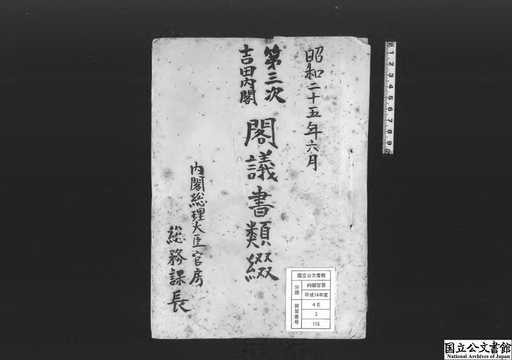 昭和二十五年六月
第三次
吉田内閣
閣議書類綴
内閣総理大臣官房
総務課長
国立公文書館
分類
内閣官房
平成14年度
排架番号
4E
3
115
国立公文書館
National Archives of Japan